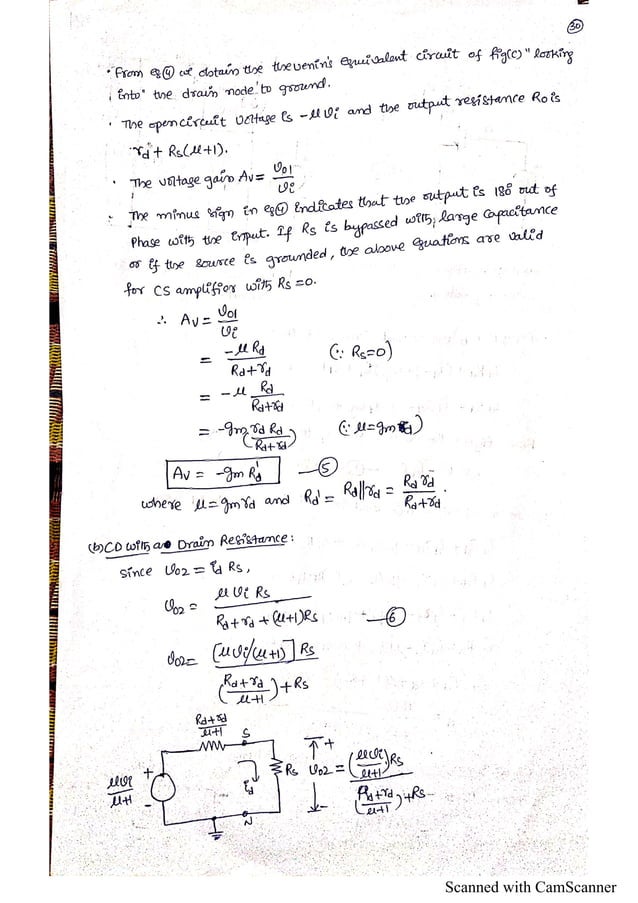 30
• From eq④ we obtain the thevenin's equivalent circuit of fig(c) "looking
into" the drain node to ground.
• The opencircuit voltage is -μvi and the output resistance Ro is
rd + Rs(μ+1).
• The voltage gain Av = vo1/vi
• The minus sign in eq④ indicates that the output is 180 out of
Phase with the input. If Rs is bypassed with large capacitance
or if the source is grounded, the above equations are valid
for CS amplifier with Rs=0.
∴ Av = vo1/vi
= -μRd/(Rd+rd) (∵ Rs=0)
= -μ Rd/(Rd+rd)
= -gm rd Rd/(Rd+rd) (∵ μ=gm rd)
Av = -gm Rd' —⑤
where μ=gmrd and Rd' = Rd||rd = Rd rd/(Rd+rd).
(b) CD with a Drain Resistance:
since vo2 = id Rs,
vo2 = μvi Rs/(Rd+rd+(μ+1)Rs) —⑥
vo2 = [μvi/(μ+1)]Rs/((Rd+rd/μ+1)+Rs)
Rd+rd/μ+1 S
μvi/μ+1 + - id Rs + vo2 - = (μvi/μ+1)Rs/((Rd+rd/μ+1)+Rs)
N
Scanned with CamScanner